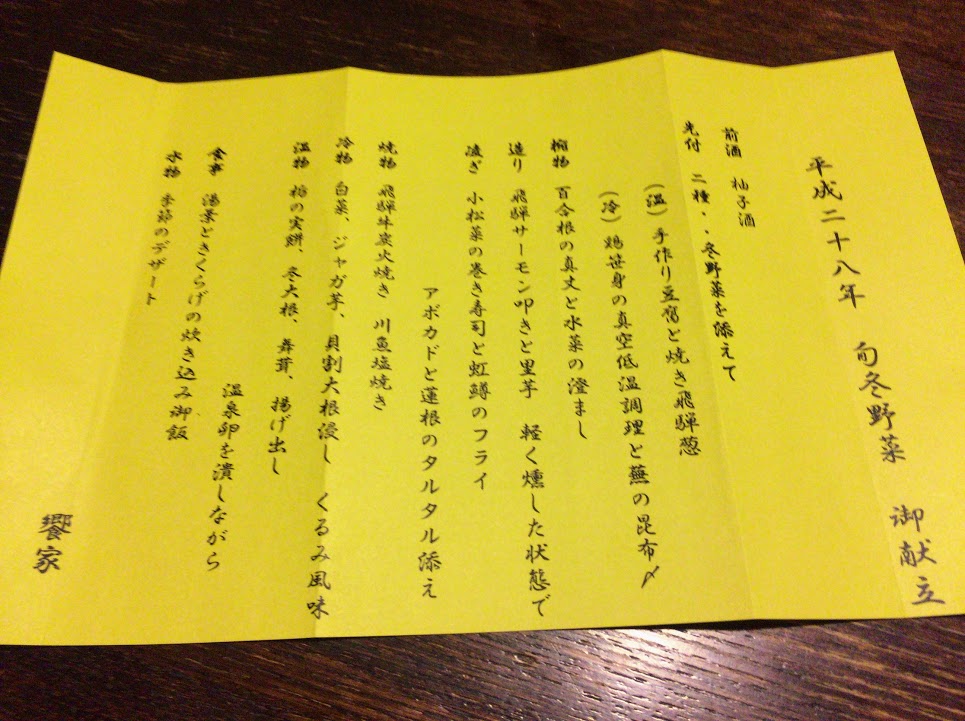 平成二十八年　旬冬野菜　御献立
前酒　柚子酒
先付　二種・・冬野菜を添えて
（温）手作り豆腐と焼き飛騨葱
（冷）鶏笹身の真空低温調理と蕪の昆布〆
椀物　百合根の真丈と水菜の澄まし
造り　飛騨サーモン叩きと里芋　軽く燻した状態で
凌ぎ　小松菜の巻き寿司と虹鱒のフライ
アボカドと蓮根のタルタル添え
焼物　飛騨牛炭火焼き　川魚塩焼き
冷物　白菜、ジャガ芋、貝割大根浸し　くるみ風味
温物　栃の実餅、冬大根、舞茸、揚げ出し
食事　湯葉ときくらげの炊き込み御飯
温泉卵を潰しながら
水物　季節のデザート
饗家